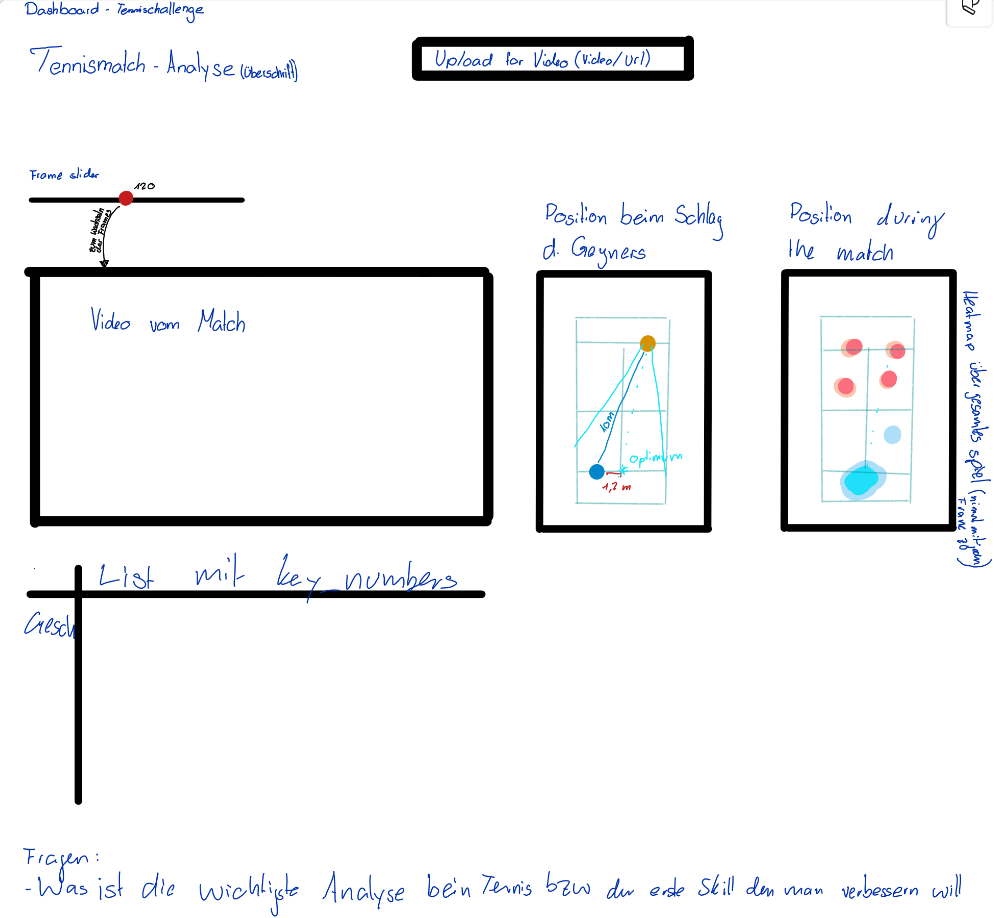 Dashboard - Tennischallenge
Tennismatch - Analyse (Überschrift)
Upload for Video (Video/Url)
Frame slider
120
zum Wechseln
der Frames
Position beim Schlag
d. Gegners
Position during
the match
Video vom Match
10m
Optimum
1,2 m
Heatmap über gesamtes spiel (nimmt mit jedem
Frame zu)
List mit key_numbers
Gesch
Fragen:
- Was ist die wichtigste Analyse bein Tennis bzw der erste Skill den man verbessern will